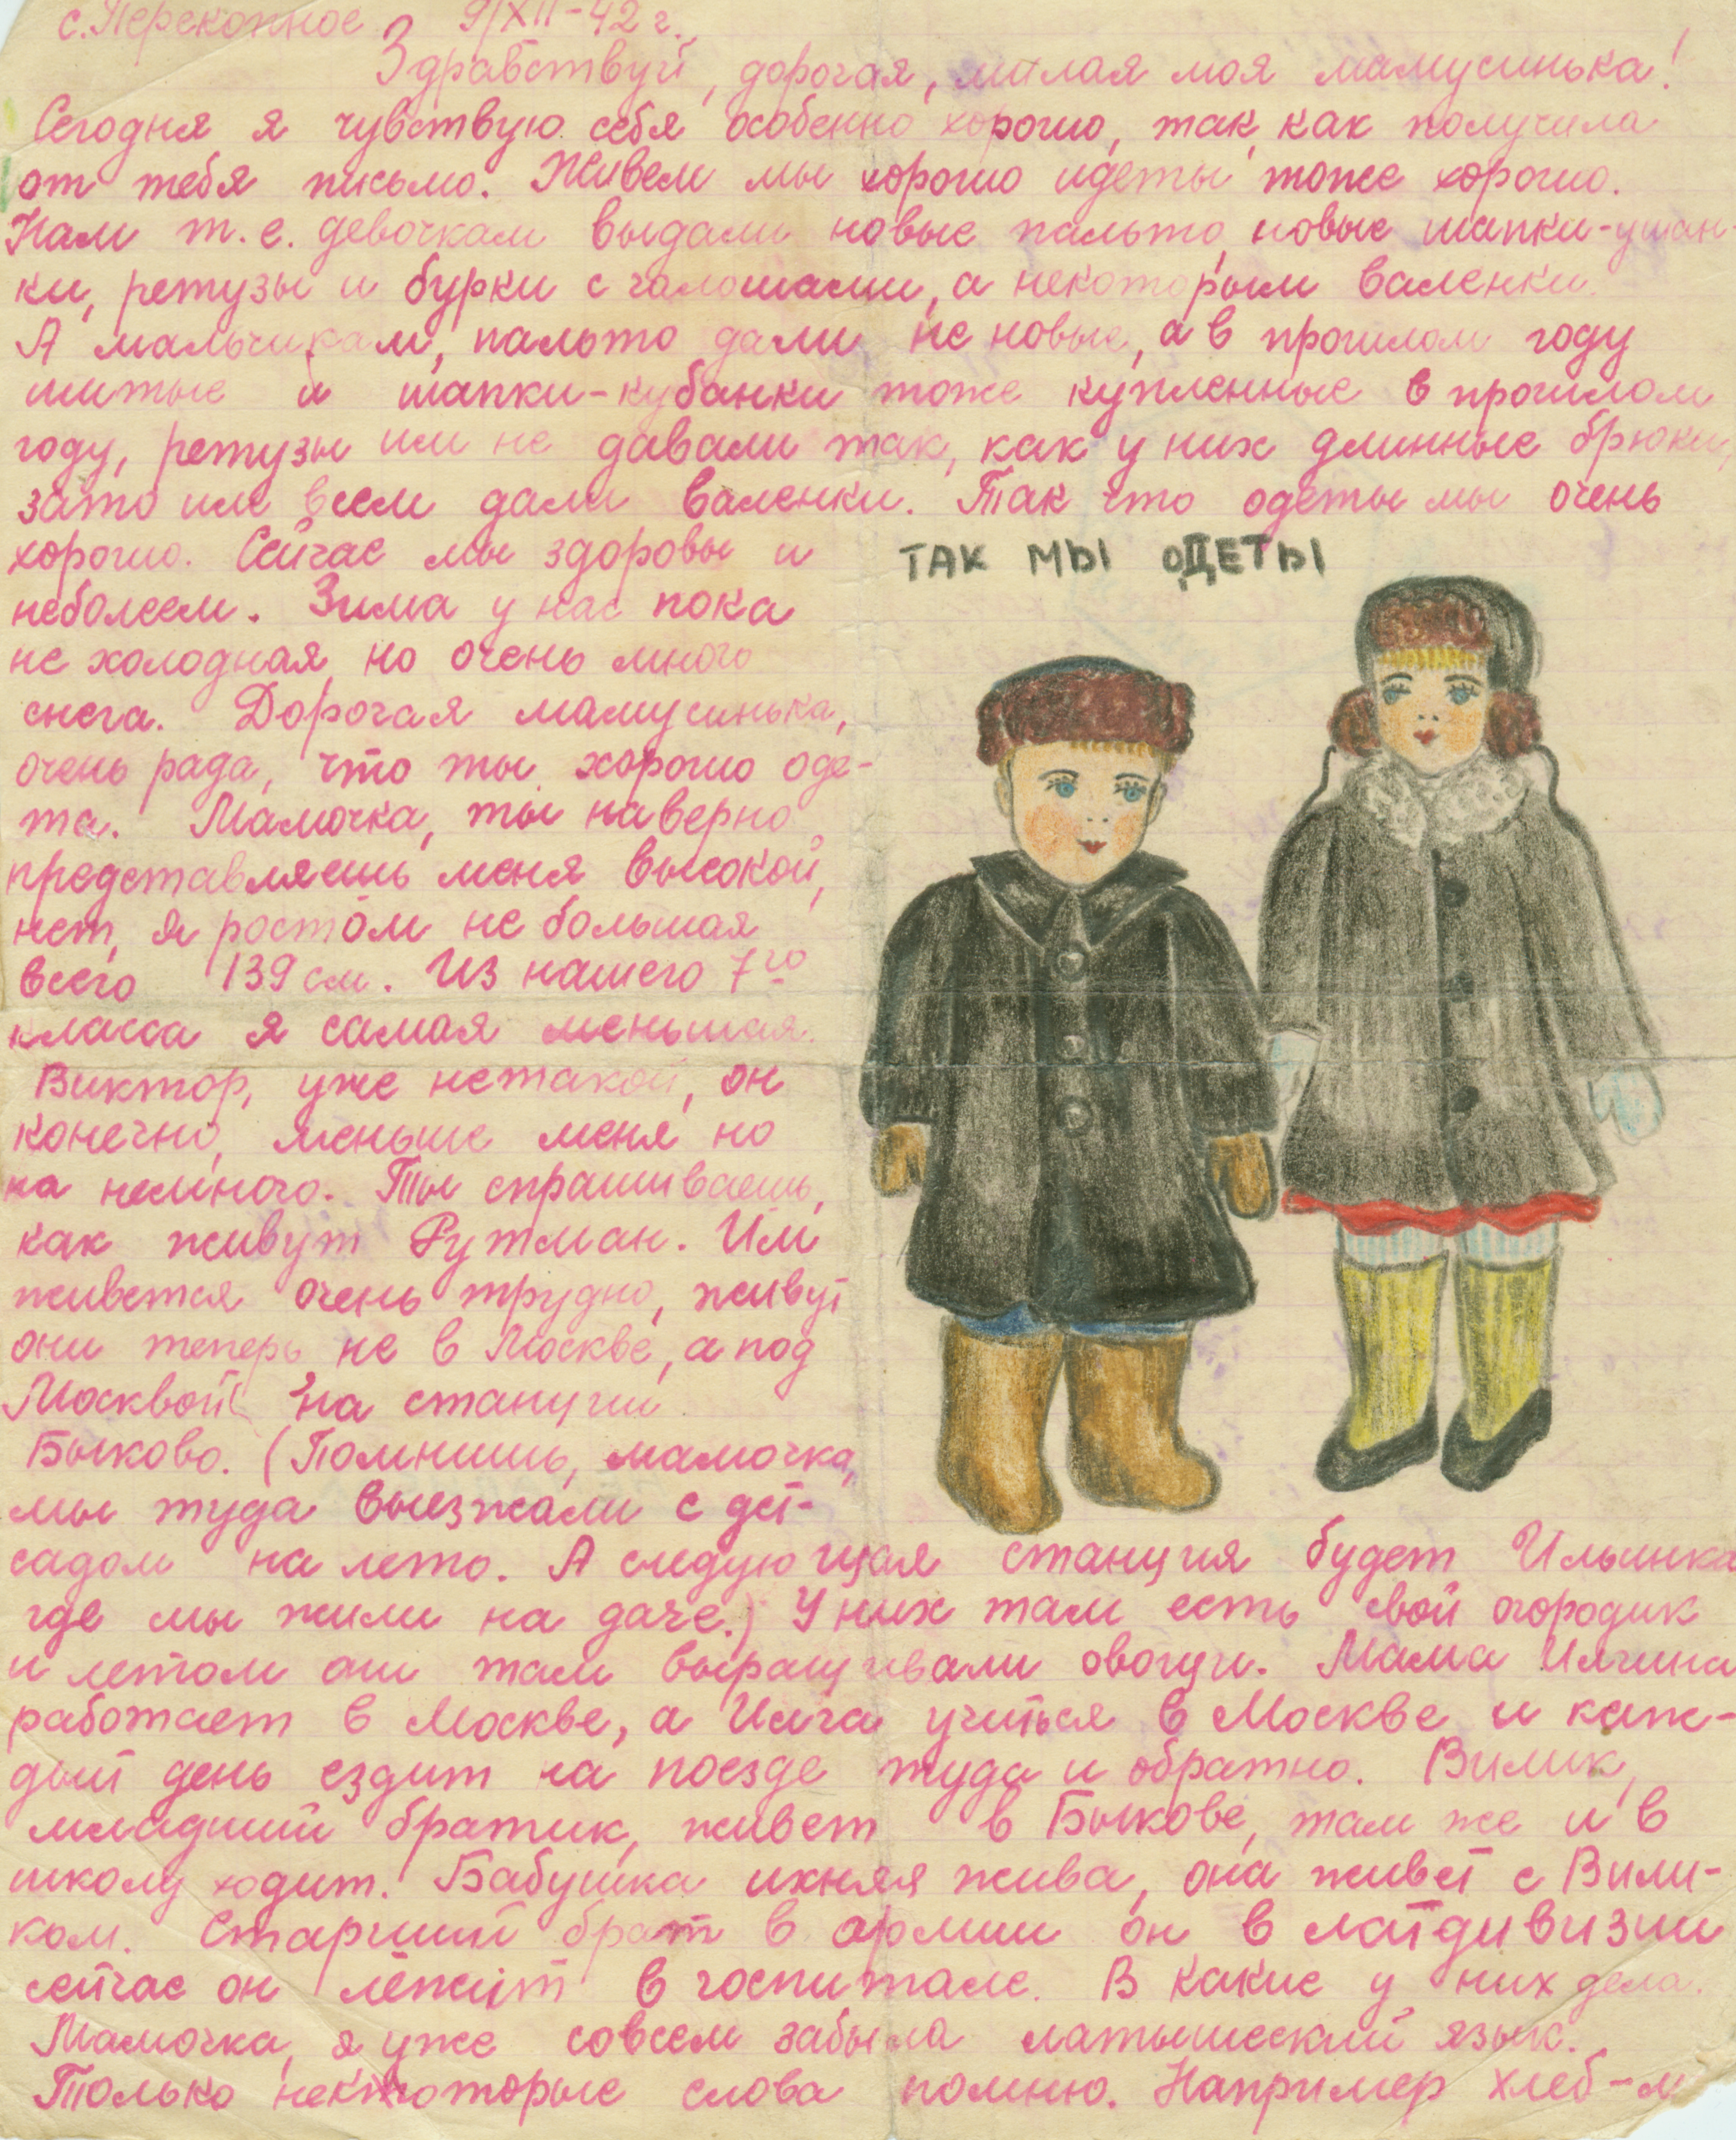 с. Перекопное 9/XII-42 г.
Здравствуй, дорогая, милая моя мамусинька!
Сегодня я чувствую себя особенно хорошо, так, как получила
от тебя письмо. Живем мы хорошо идеты тоже хорошо.
Нам т.е. девочкам выдали новые пальто, новые шапки-ушан-
ки, ретузы и бурки с галошами, а некоторым валенки.
А мальчикам, пальто дали не новые, а в прошлом году
шитые и шапки-кубанки тоже купленные в прошлом
году, ретузы им не давали так, как у них длинные брюки,
зато им всем дали валенки. Так что одеты мы очень
хорошо. Сейчас мы здоровы и
неболеем. Зима у нас пока
не холодная, но очень много
снега. Дорогая мамусинька,
очень рада, что ты хорошо оде-
та. Мамочка, ты наверно
представляешь меня высокой,
нет, я ростом не большая
всего 139 см. Из нашего 7го
класса я самая меньшая.
Виктор, уже нетакой, он
конечно, меньше меня но
на немного. Ты спрашиваешь,
как живут Рутман. Им
живется очень трудно, живут
они теперь не в Москве, а под
Москвой на станции
Быково. (Помнишь, мамочка,
мы туда выезжали с дет-
садом на лето. А следующая станция будет Ильинка
где мы жили на даче.) У них там есть свой огородик
и летом они там выращивали овощи. Мама Имчина
работает в Москве, а Имча учиться в Москве и каж-
дый день ездит на поезде туда и обратно. Вилик,
младший братик, живет в Быкове, там же и в
школу ходит. Бабушка ихняя жива, она живет с Вили-
ком. Старший брат в армии он в латдивизии
сейчас он лежит в госпитале. В какие у них дела.
Мамочка, я уже совсем забыла латышский язык.
Только некоторые слова помню. Например хлеб-м
ТАК МЫ ОДЕТЫ